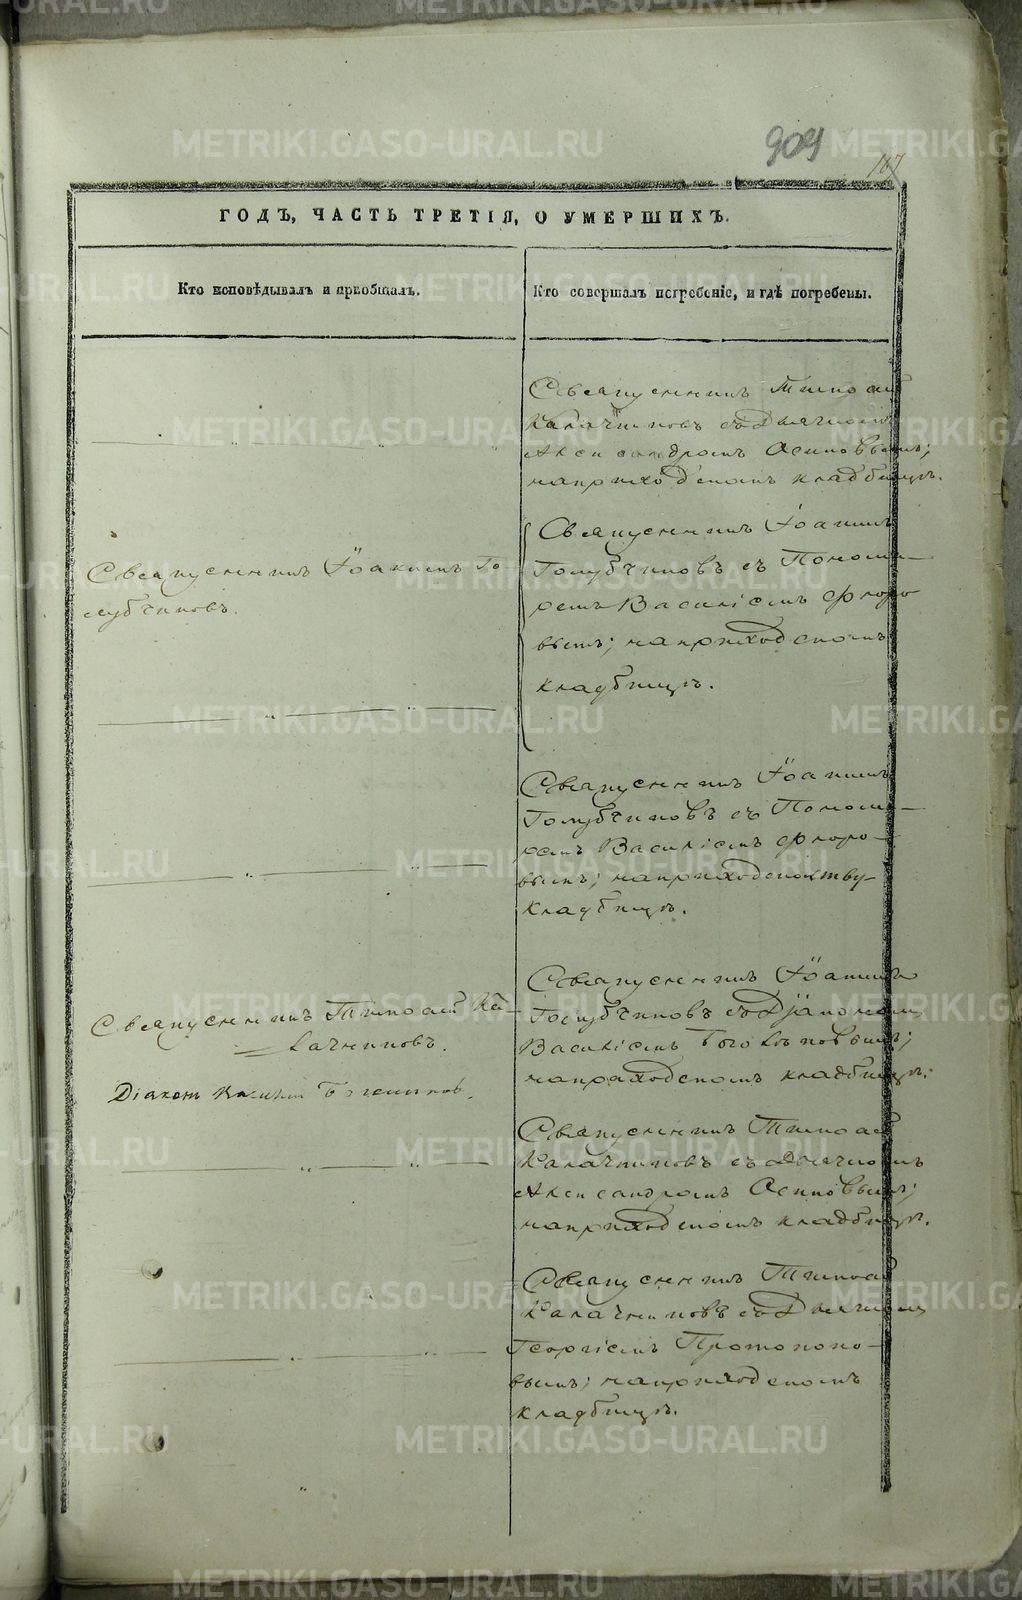 909
167
ГОДЪ, ЧАСТЬ ТРЕТІЯ, О УМЕРШИХЪ.
Кто исповѣдывалъ и пріобщалъ.
Кто совершалъ погребеніе, и гдѣ погребены.
Священникъ Тимоѳей
Калачниковъ съ Дьячкомъ
Александромъ Осиповымъ;
на приходскомъ кладбищѣ.
Священникъ Іоакимъ Го
лубчиковъ.
Священникъ Іоакимъ
Голубчиковъ съ Понома-
ремъ Василіемъ Флоро
вымъ; на приходскомъ
кладбищѣ.
Священникъ Іоакимъ
Голубчиковъ съ Понома-
ремъ Василіемъ Флоро-
вымъ; на приходскомъ
кладбищѣ.
Священникъ Тимоѳей Ка-
лачниковъ.
Діаконъ
Священникъ Іоакимъ
Голубчиковъ съ Діакономъ
Василіемъ
на приходскомъ кладбищѣ.
Священникъ Тимоѳей
Калачниковъ съ Дьячкомъ
Александромъ Осиповымъ;
на приходскомъ кладбищѣ.
Священникъ Тимоѳей
Калачниковъ съ Дьячкомъ
Георгіемъ Протопопо-
вымъ; на приходскомъ
кладбищѣ.
METRIKI.GASO-URAL.RU